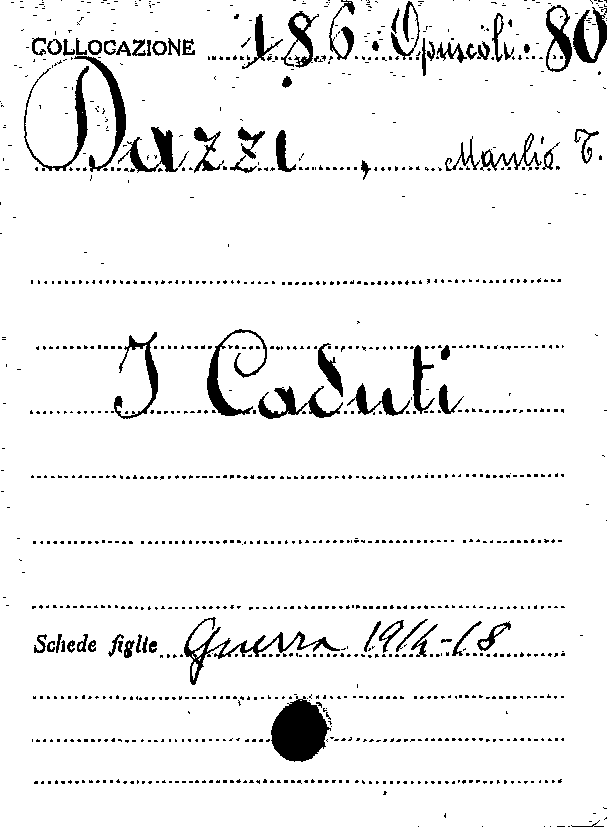 COLLOCAZIONE 186. Opuscoli. 80
Dazzi, Manlio T.
I Caduti
Schede figlie Guerra 1914-18